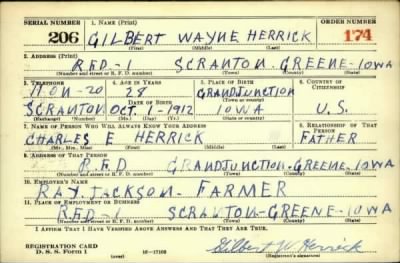 SERIAL NUMBER 1. NAME (Print) ORDER NUMBER
206 GILBERT WAYNE HERRICK 174
(First) (Middle) (Last)
2. ADDRESS (Print)
RFD-1 SCRANTON-GREENE-IOWA
(Number and street or R. F. D. number) (Town) (County) (State)
3. TELEPHONE 4. AGE IN YEARS 5. PLACE OF BIRTH 6. COUNTRY OF CITIZENSHIP
28 GRANDJUNCTION
DATE OF BIRTH (Town or county)
SCRANTON OCT. 1-1912 IOWA U.S.
(Exchange) (Number) (Mo.) (Day) (Yr.) (State or country)
7. NAME OF PERSON WHO WILL ALWAYS KNOW YOUR ADDRESS 8. RELATIONSHIP OF THAT PERSON
CHARLES E HERRICK FATHER
(Mr., Mrs., Miss) (First) (Middle) (Last)
9. ADDRESS OF THAT PERSON
RFD GRANDJUNCTION-GREENE-IOWA
(Number and street or R. F. D. number) (Town) (County) (State)
10. EMPLOYER'S NAME
RAY JACKSON- FARMER
11. PLACE OF EMPLOYMENT OR BUSINESS
RFD-1 SCRANTON-GREENE-IOWA
(Number and street or R. F. D. number) (Town) (County) (State)
I AFFIRM THAT I HAVE VERIFIED ABOVE ANSWERS AND THAT THEY ARE TRUE.
REGISTRATION CARD
D. S. S. Form 1 16-17105 Gilbert W. Herrick
(Registrant's signature)